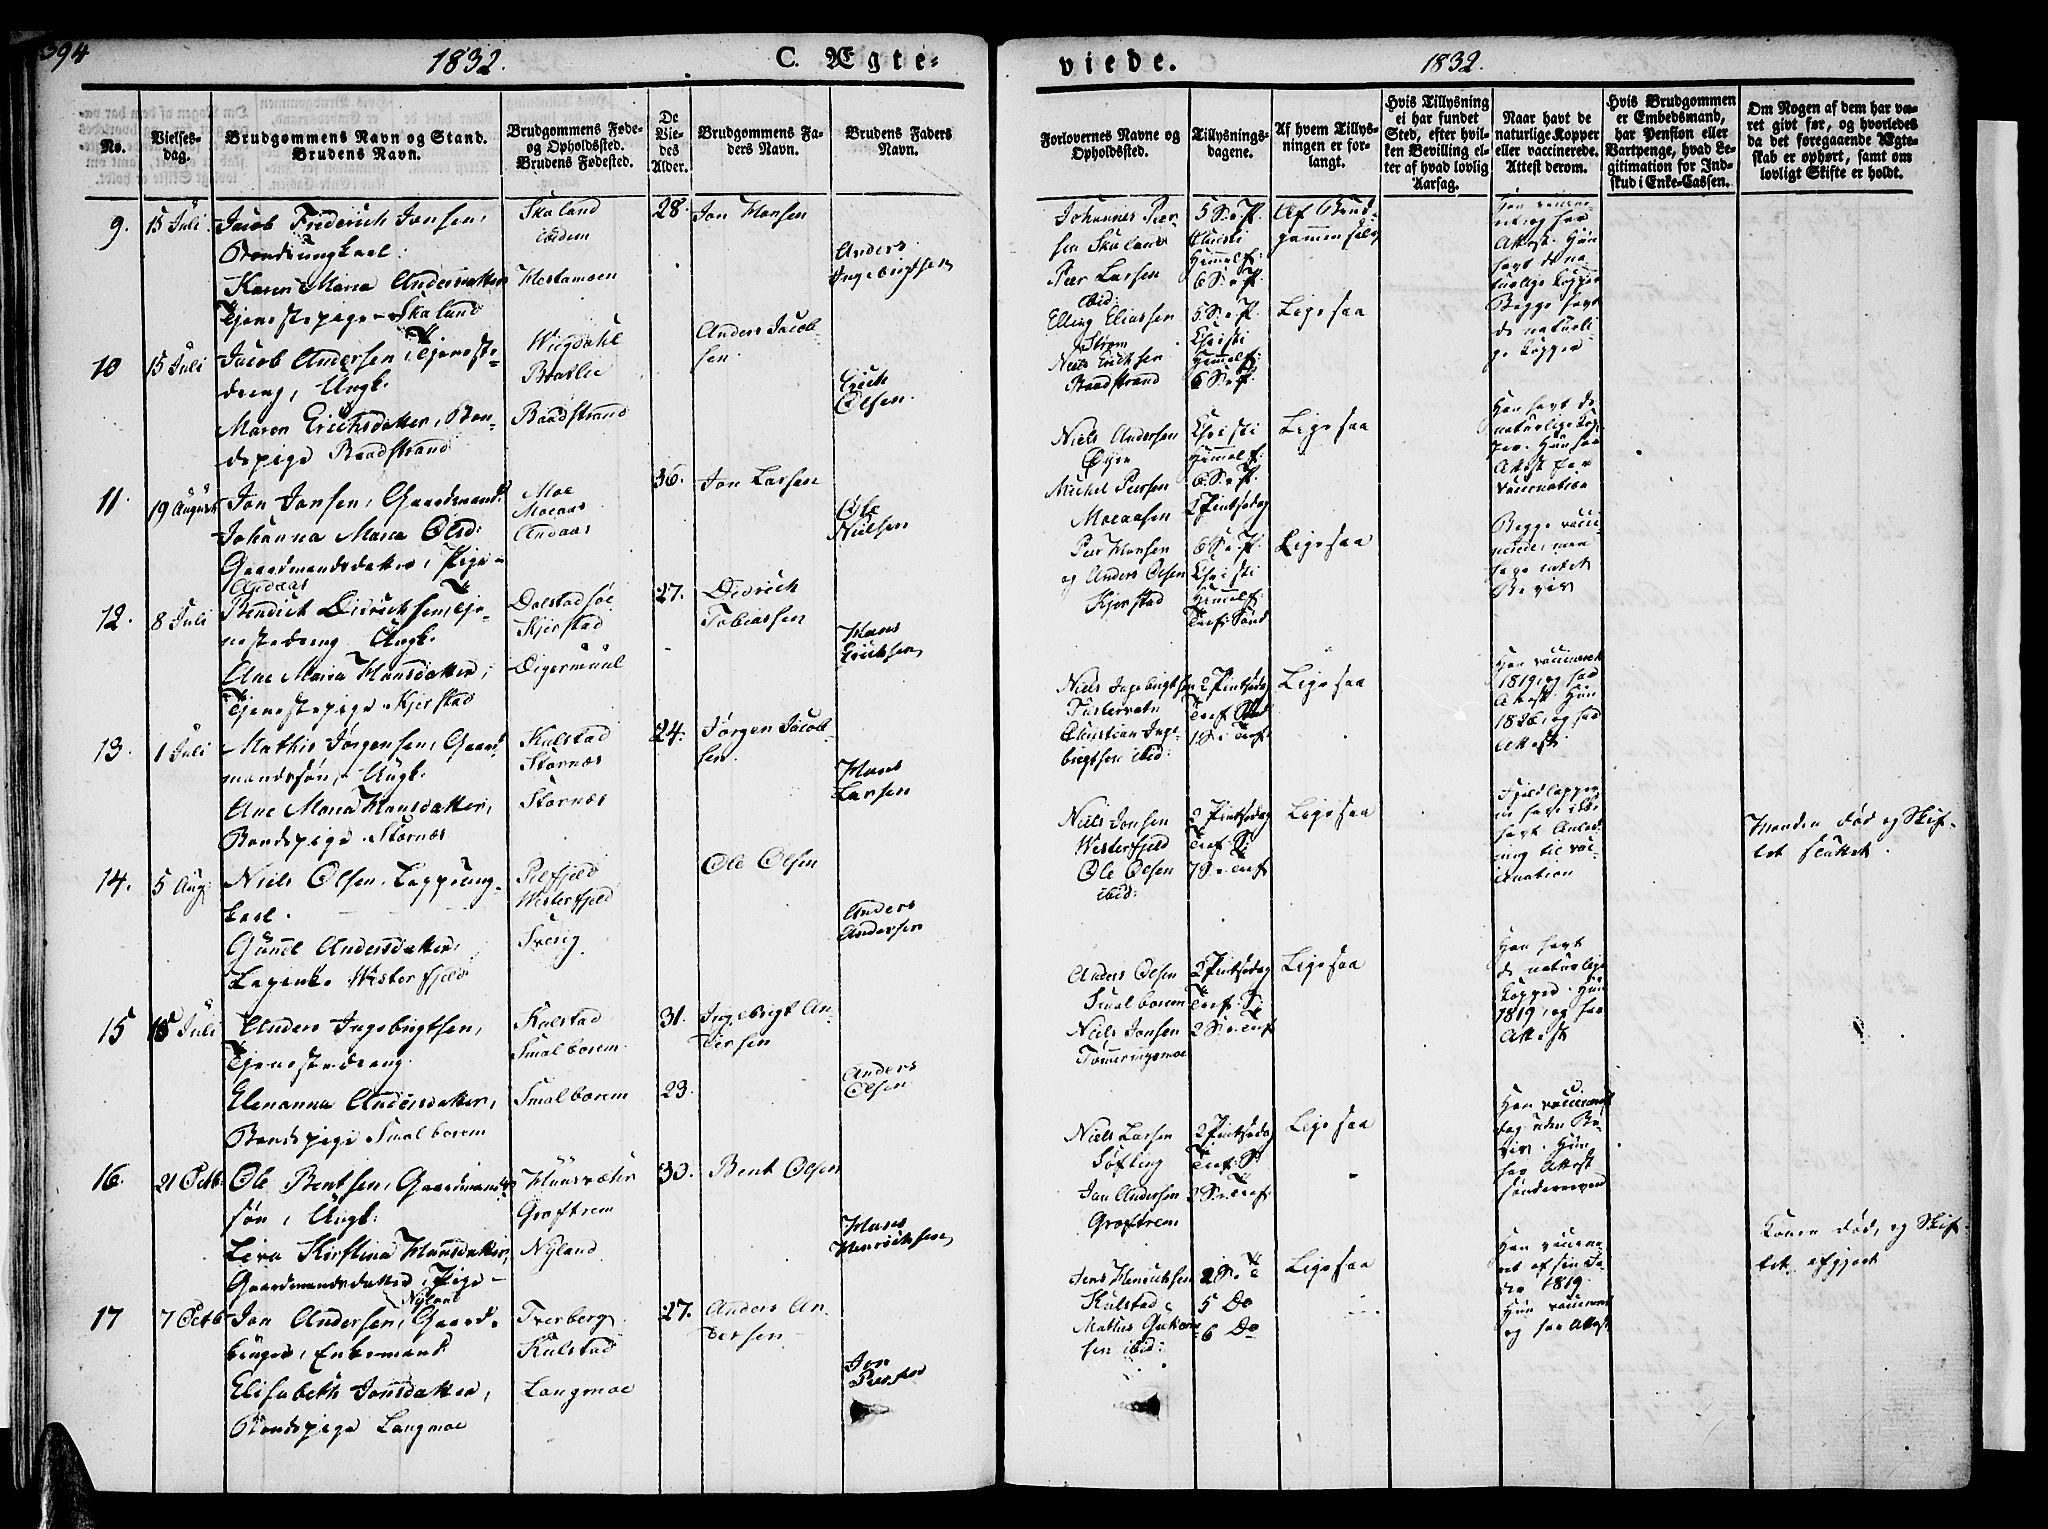 394
1832.
C. Ægte-
viede.
1832.
No.
Vielses-
dag.
Brudgommens Navn og Stand.
Brudens Navn.
Brudgommens Føde-
og Opholdssted.
Brudens Fødested.
De
Vie-
des
Alder.
Brudgommens Fa-
ders Navn.
Brudens Faders
Navn.
Forlovernes Navne og
Opholdssted.
Tillysnings-
dagene.
Af hvem Tillys-
ningen er for-
langt.
Hvis Tillysning
ei har fundet
Sted, efter hvil-
ken Bevilling el-
ler af hvad lovlig
Aarsag.
Naar havt de
naturlige Kopper
eller vaccinerede.
Attest derom.
Hvis Brudgommen
er Embedsmand,
har Pension eller
Vartpenge, hvad Le-
gitimation for Ind-
skud i Enke-Cassen.
Om Nogen af dem har væ-
ret givt før, og hvorledes
da det foregaaende Ægte-
skab er ophørt, samt om
lovligt Skifte er holdt.
9. 15 Juli
Jacob Friderich Jonsen,
Bondeungkarl.
Karen Maria Andersdatter
Tjenestepige Skaland
Skaland
ibidem
Hestamoen
28.
Jon Hansen
Anders
Ingebrigtsen
Johannes Peer-
sen Skaland
Peer Larsen
ibid:
5 S. e. P.
Christi
Himmelf:
6 S. e. P.
Af Brud-
gommen selv
10 15 Juli
Jacob Andersen, Tjeneste-
dreng, Ungk.
Maren Erichsdatter, Bon-
depige Baadstrand
Wiigdahl
Braslie
Baadstrand
Anders Jacob-
sen.
Erich
Olsen.
Elling Eliassen
Strøm
Niels Erichsen
Baadstrand
5. S. e. P.
Christi
Himmelf:
6 S. e. P.
Ligesaa
Begge havt
de naturli-
ge Kopper
11. 19 August
Jon Jonsen, Gaardmand
Johanna Maria Olsd:
Gaardmandsdatter, Pige
Andaas
Moe
Moeaas
Andaas
36.
Jon Larsen
Ole
Nielsen
Niels Andersen
Øyen
Michel Peersen
Moeaasen
Christi
Himmelf:
6. S. e. P.
2 Pintsedag
Ligesaa
Han havt de
naturlige Kop-
per. Hun har
Attest for
vaccination
12. 8 Juli
Bendict Didrichsen, Tje-
nestedreng Ungk.
Ane Maria Hansdatter,
Tjenestepige Kjerstad
Dolstadsøe
Kjerstad
Digermuul
27.
Didrich
Tobiassen
Hans
Erichsen
Peer Hansen
og Anders Olsen
Kjerstad
6 S. e. P.
Christi
Himmelf:
Tref: Sønd
Ligesaa
Begge vacci-
nerede, men
have intet
Beviis
13. 1 Juli
Mathis Jørgensen, Gaard-
mandssøn, Ungk.
Ane Maria Hansdatter,
Bondepige Stornæs
Kulstad
Stornæs
Stornæs
24.
Jørgen Jacob-
sen.
Hans
Larsen
Niels Ingebrigtsen
Fustervatn
Christian Inge-
brigtsen ibid:
2 Pintsedag
1 S. e. Tref:
Ligesaa
Han vaccineret
1819, og har
Attest. Hun
1826, og har
Attest
14. 5 Aug:
Niels Olsen, Lappung-
karl.
Gunel Andersdatter,
Lapenke Westerfjeld
Westerfjeld
Sverig
Ole Olsen
Anders
Andersen
Niels Jonsen
Westerfjeld
Ole Olsen
ibid:
2 Pintsedag
Tref: S:
7 S. e. Tref
Ligesaa
Fjeldlapper-
ne have ikke
havt Anled-
ning til vac-
cination
Manden død og Skif-
tet sluttet.
15 15 Juli
Anders Ingebrigtsen,
Tjenestedreng.
Elenanna Andersdatter,
Bondepige Smalborem
Kulstad
Smalborem.
Smalborem
31.
23.
Ingebrigt An-
dersen
Anders
Olsen
Anders Olsen
Smalborem
Niels Jonsen
Tømmeringsmoe
2 Pintsedag
Tref: S:
2 S. e. Tref
Ligesaa
Han havt
de naturlige
Kopper. Hun
1819, og har
Attest
16. 21 Octb:
Ole Bentsen, Gaardmands-
søn, Ungk:
Lera Kirstina Hansdatter,
Gaardmandsdatter, Pige
Nyland
Huusvæter
Groftrem
Nyland
30.
Bent Olsen
Hans
Henrichsen
Niels Larsen
Søfting
Jon Andersen
Groftrem
2 Pintsedag
Tref: S:
2 S. e. Tref:
Ligesaa
Han vaccineret
dog uden Be-
viis. Hun
har Attest
sønderreven
17 7 Octb
Jon Andersen, Gaard-
bruger, Enkemand
Elisabeth Jonsdatter,
Bondepige Langmoe
Tverberg
Kulstad
Langmoe
27.
Anders An-
dersen
Jon
Peersen
Jens Henrichsen
Kulstad
sen ibid:
5 Do
6 Do
Ligesaa
Han vaccine-
ret
1819.
Hun vaccineret
og har Attest
Konen død, og Skif-
tet afgjort